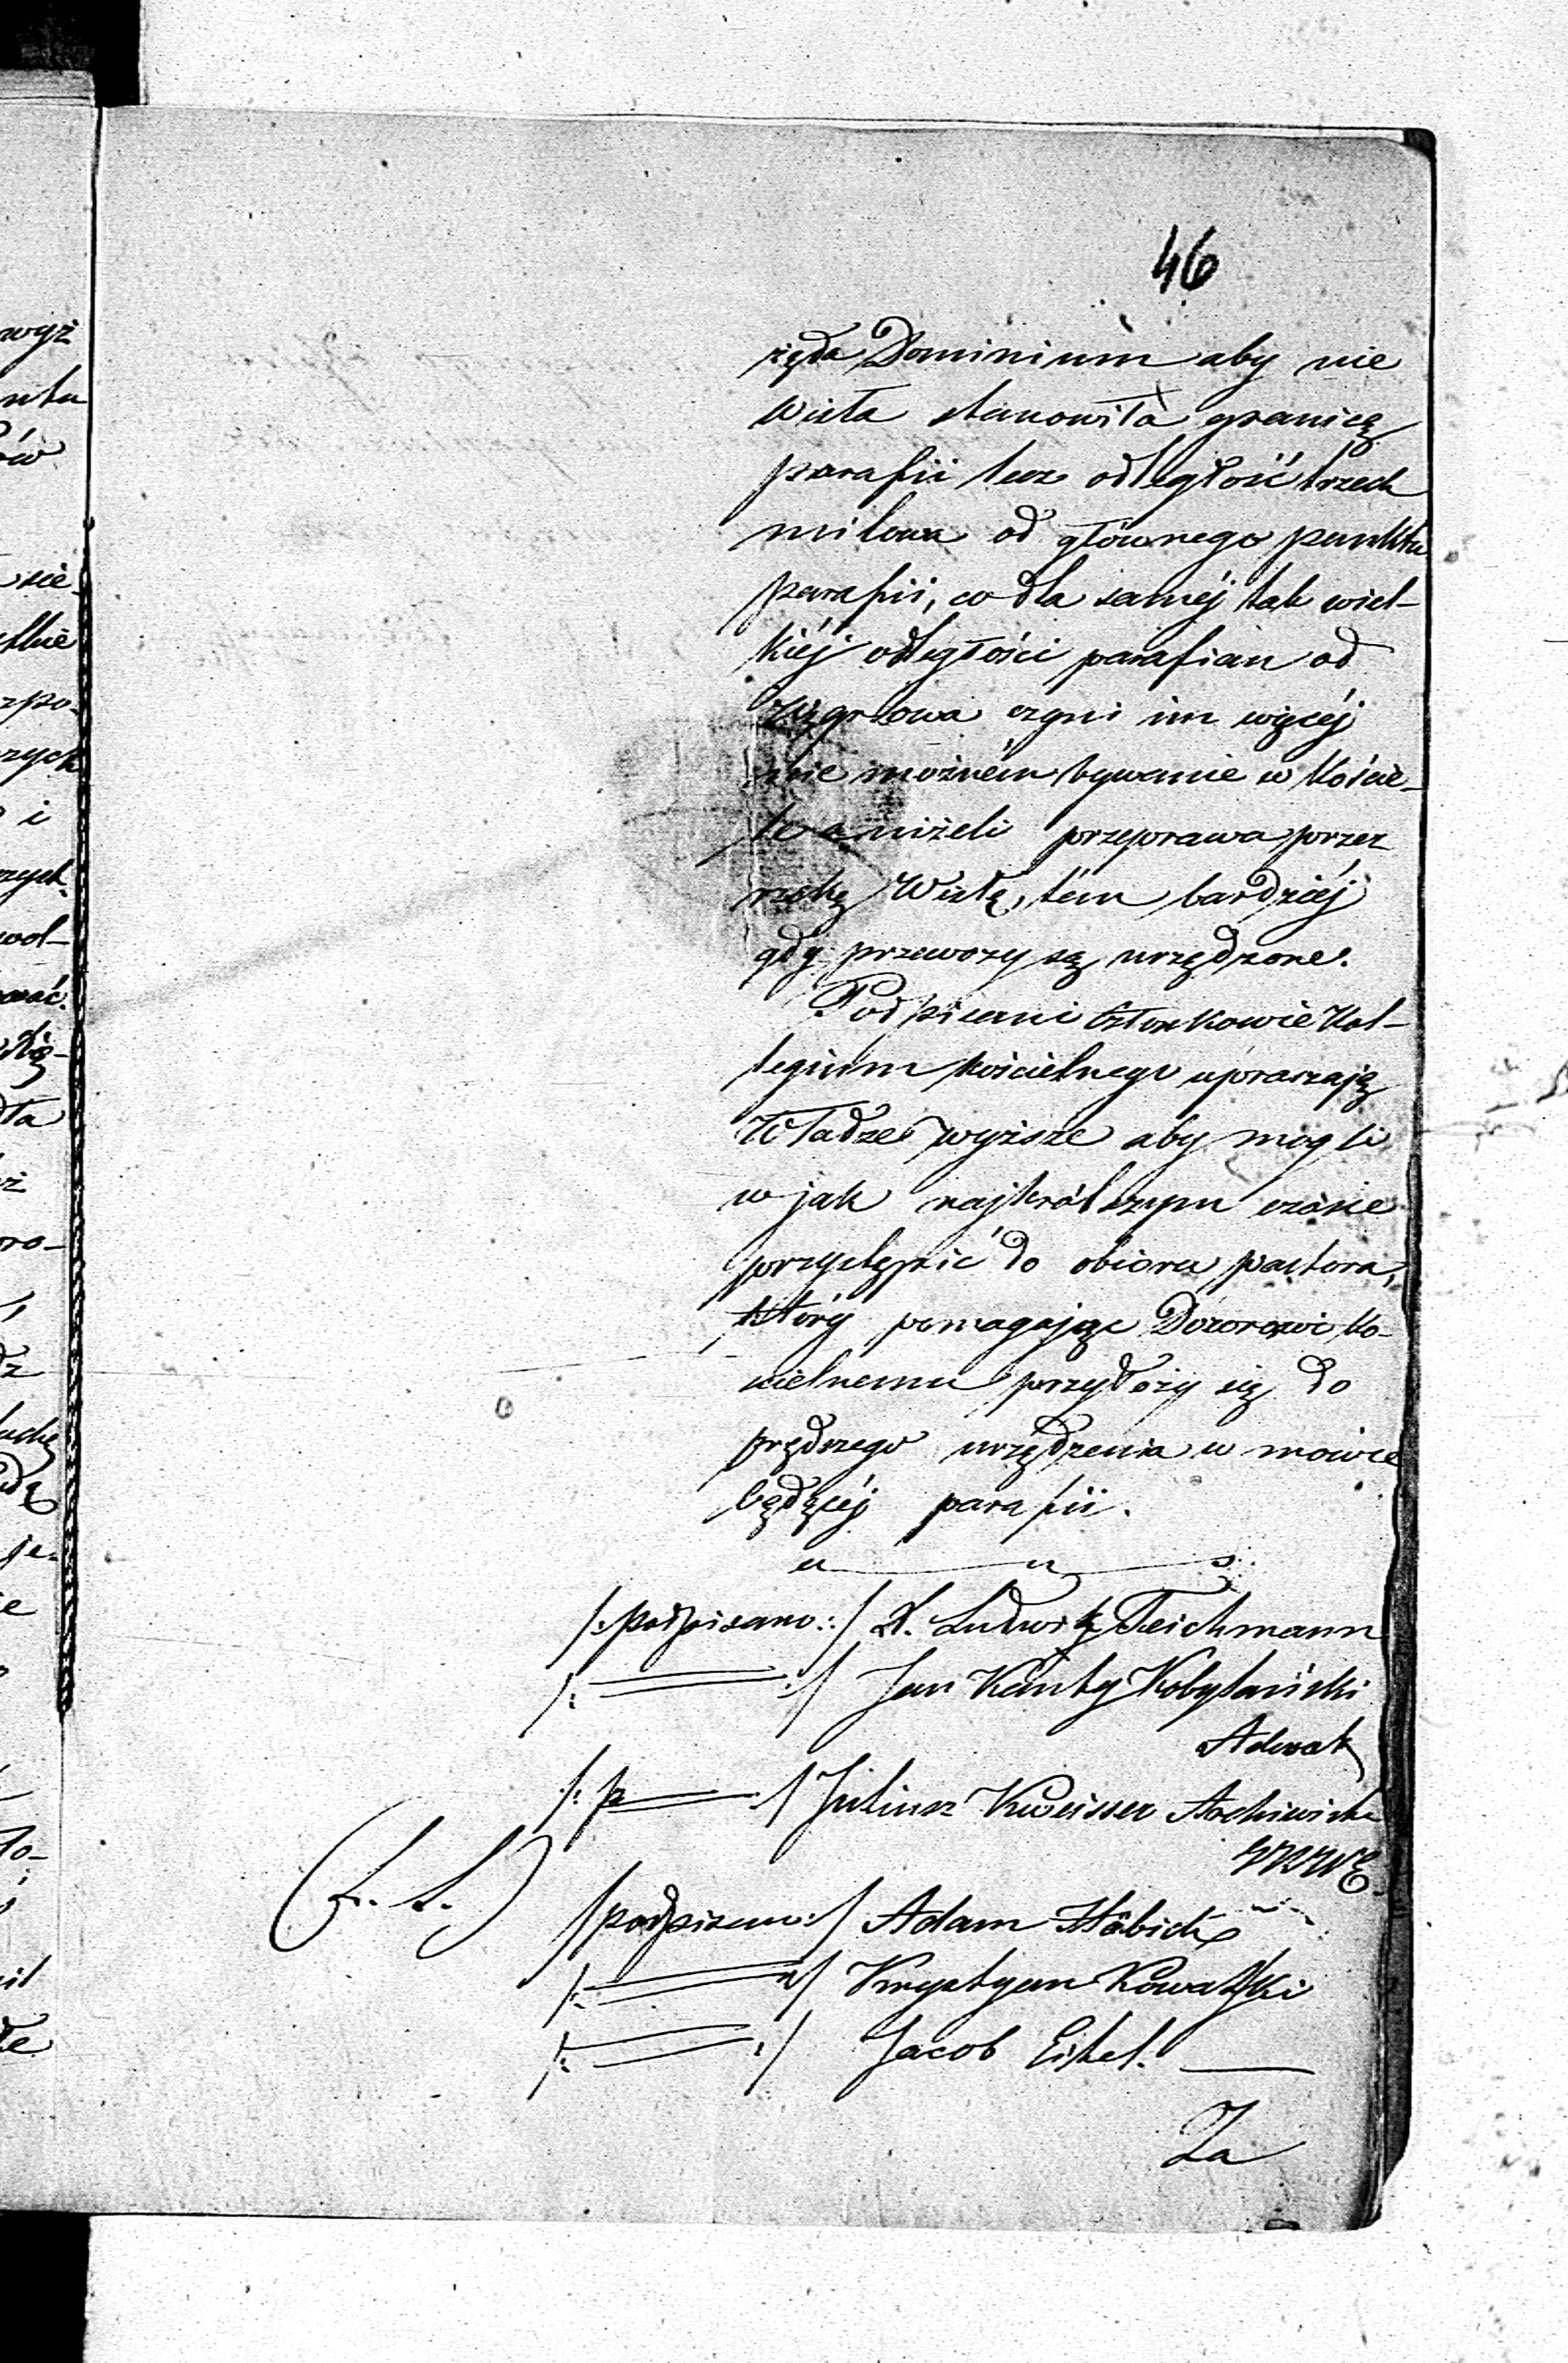 46
żąda Dominium aby nie
Wisła stanowiła granicę
parafii lecz odległość trzech
milowa od głównego punktu
parafii, co dla saméj tak wiel-
kiéj odległości parafian od
czyni im więcéj
nie możném bywanie w Koście-
le aniżeli przeprawa przez
rzekę Wisłę, tém bardziéj
gdy przewozy są urządzone.
Podpisani Członkowie Kol-
legium kościelnego upraszają
Władze wyższe aby mogli
w jak najkrótszym czasie
przystąpić do obioru pastora,
który pomagając Dozorowi Ko-
ścielnemu przyłoży się do
prędszego urządzenia w mowie
będącéj parafii.
/:podpisano:/ X. Ludwik Teichmann
/: :/ Jan Kanty Kobylański
Adwok
/: p :/ Juliusz Kweisser Archiwista
(L. S.)
/podpisano:/ Adam Häbich
/: :/ Krystyan Kowalski
/: :/ Jacob Eikel.
Za
wyż
ntu
ów
sie
zpo-
rzych
i
wol-
dła
ż
oro-
dz
je-
ie
ło-